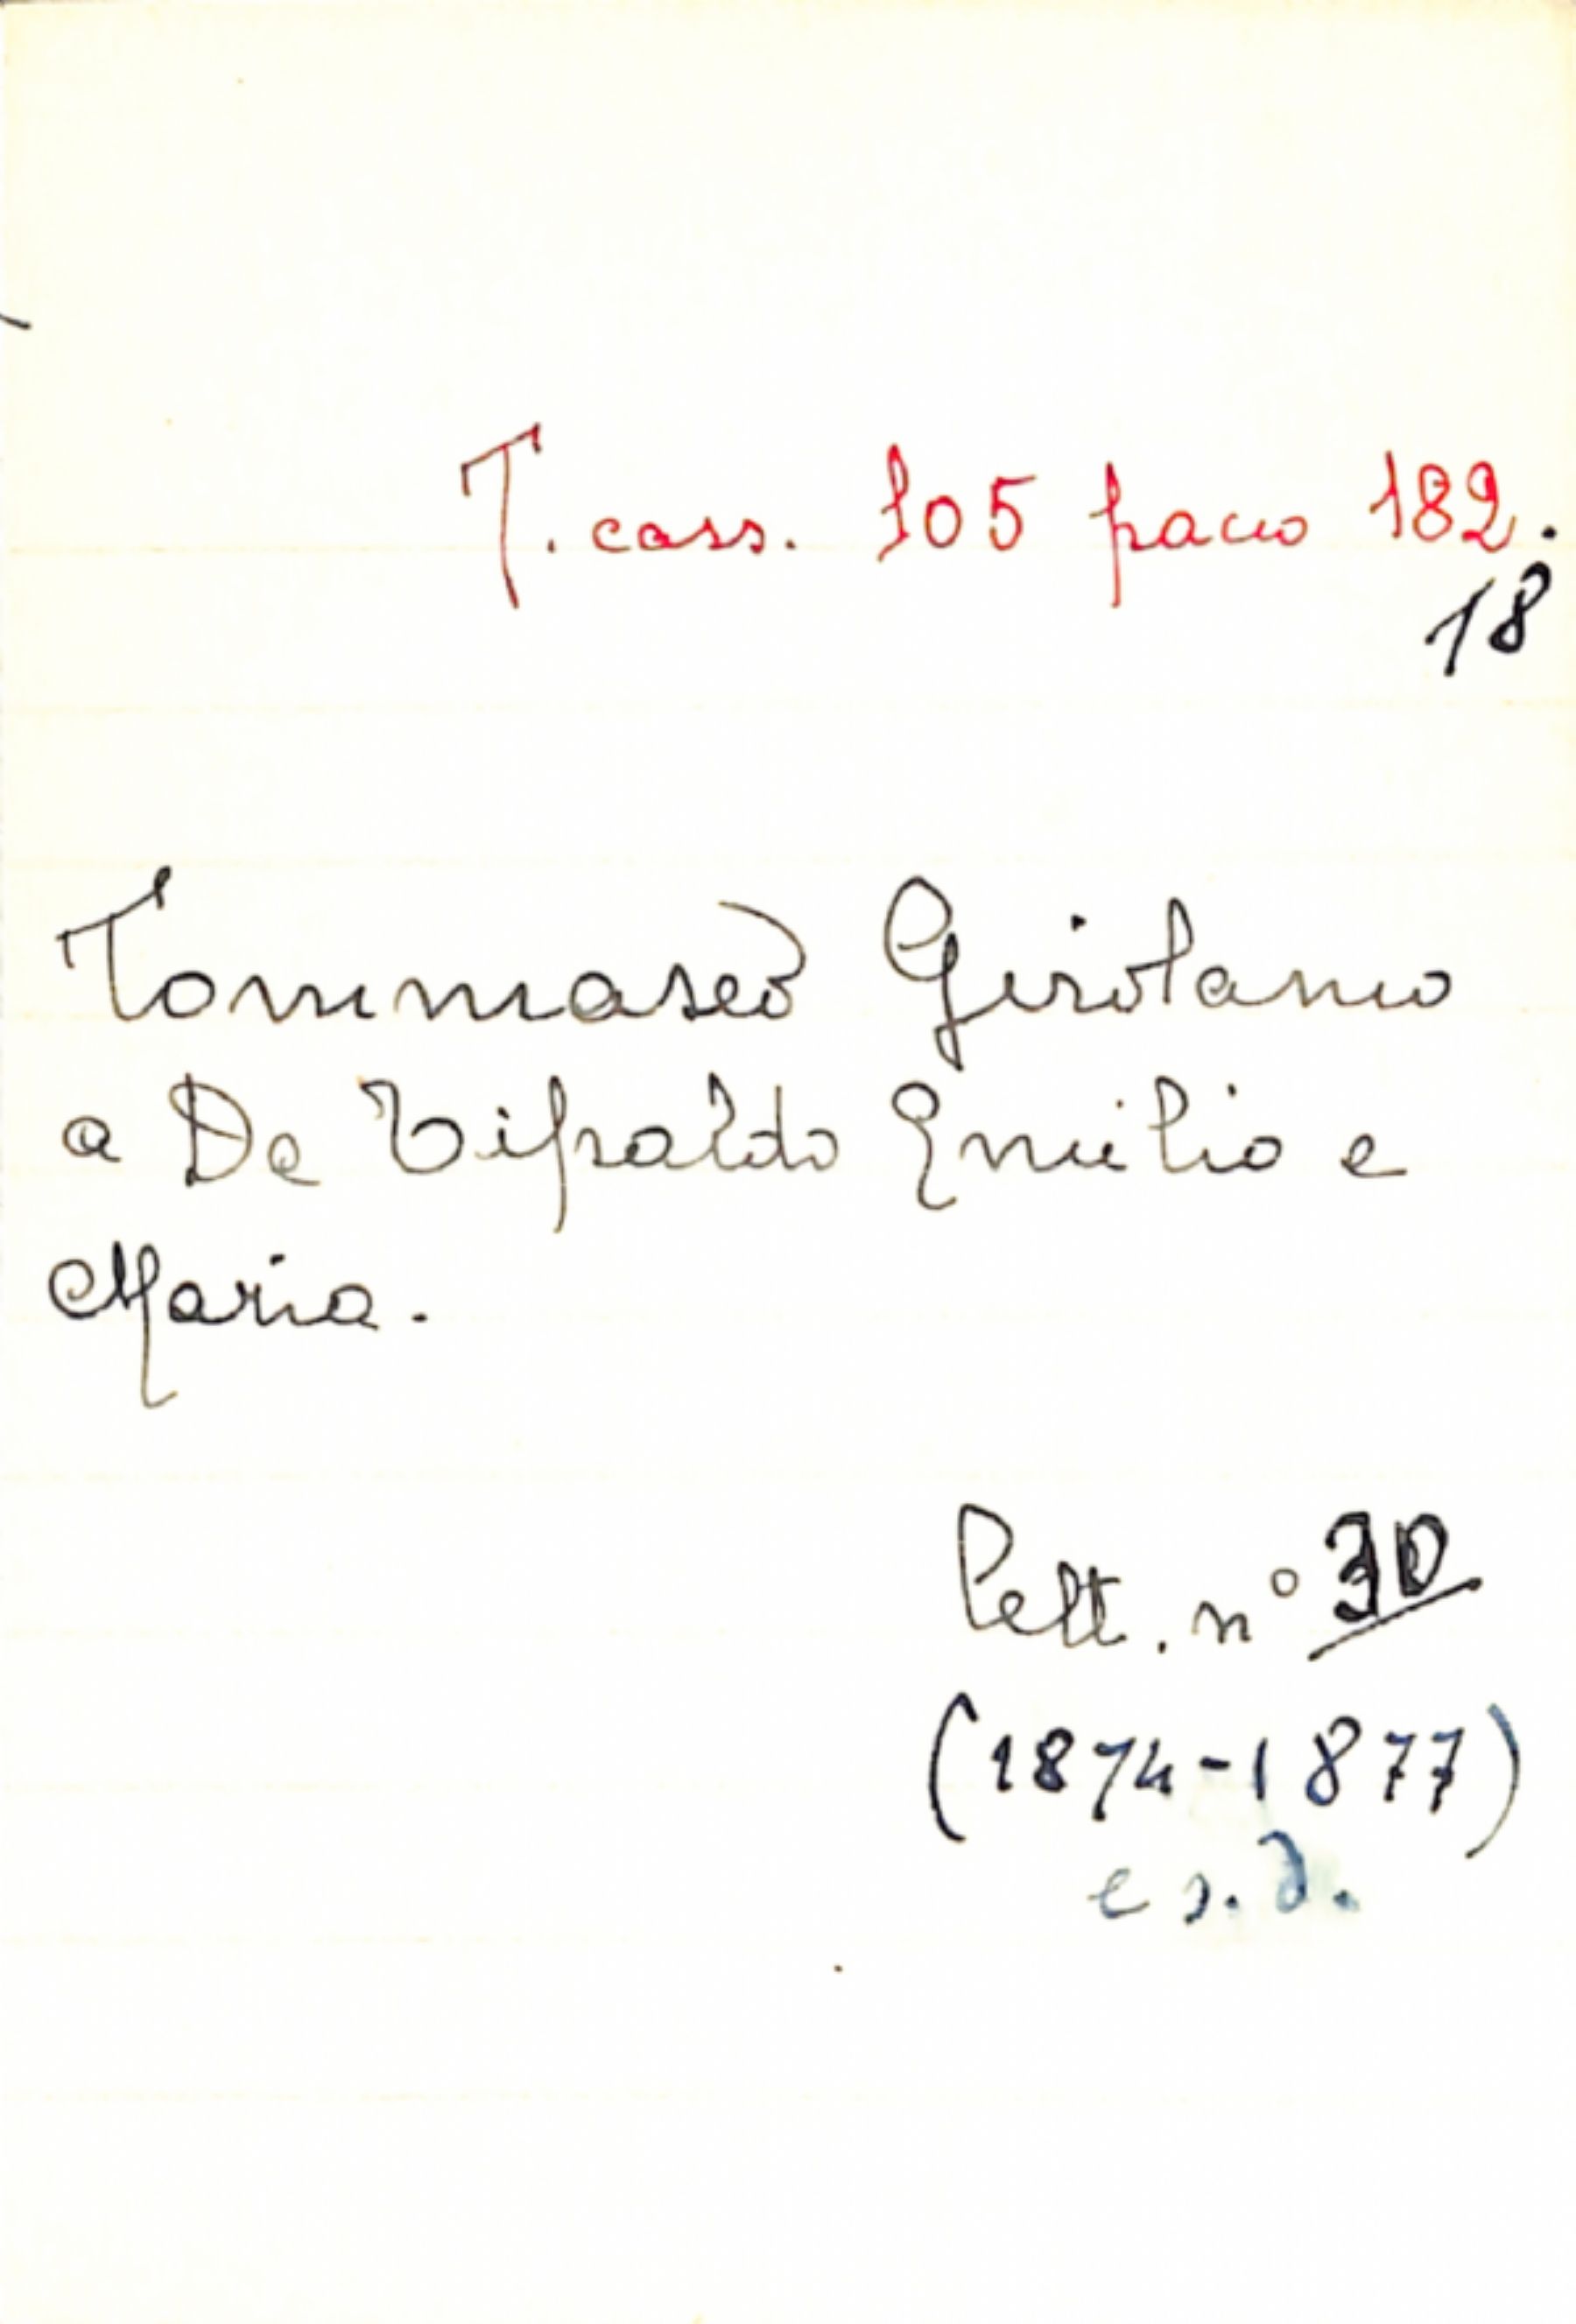 T. cass. 105 pacco 182.
18
Tommaseo Girolamo
a De Tipaldo Emilio e
Maria.
Lett. n° 30
(1874-1877)
e s.d.